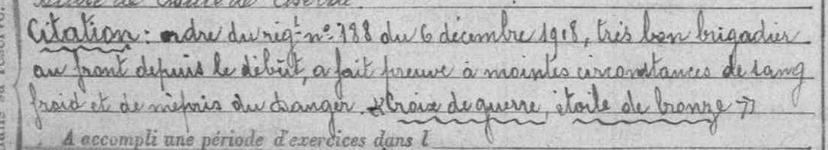 Citation : ordre du régt nº 188 du 6 décembre 1918, très bon brigadier
au front depuis le début, a fait preuve à maintes circonstances de sang
froid et de mépris du danger. « Croix de guerre, étoile de bronze »
A accompli une période d'exercices dans l